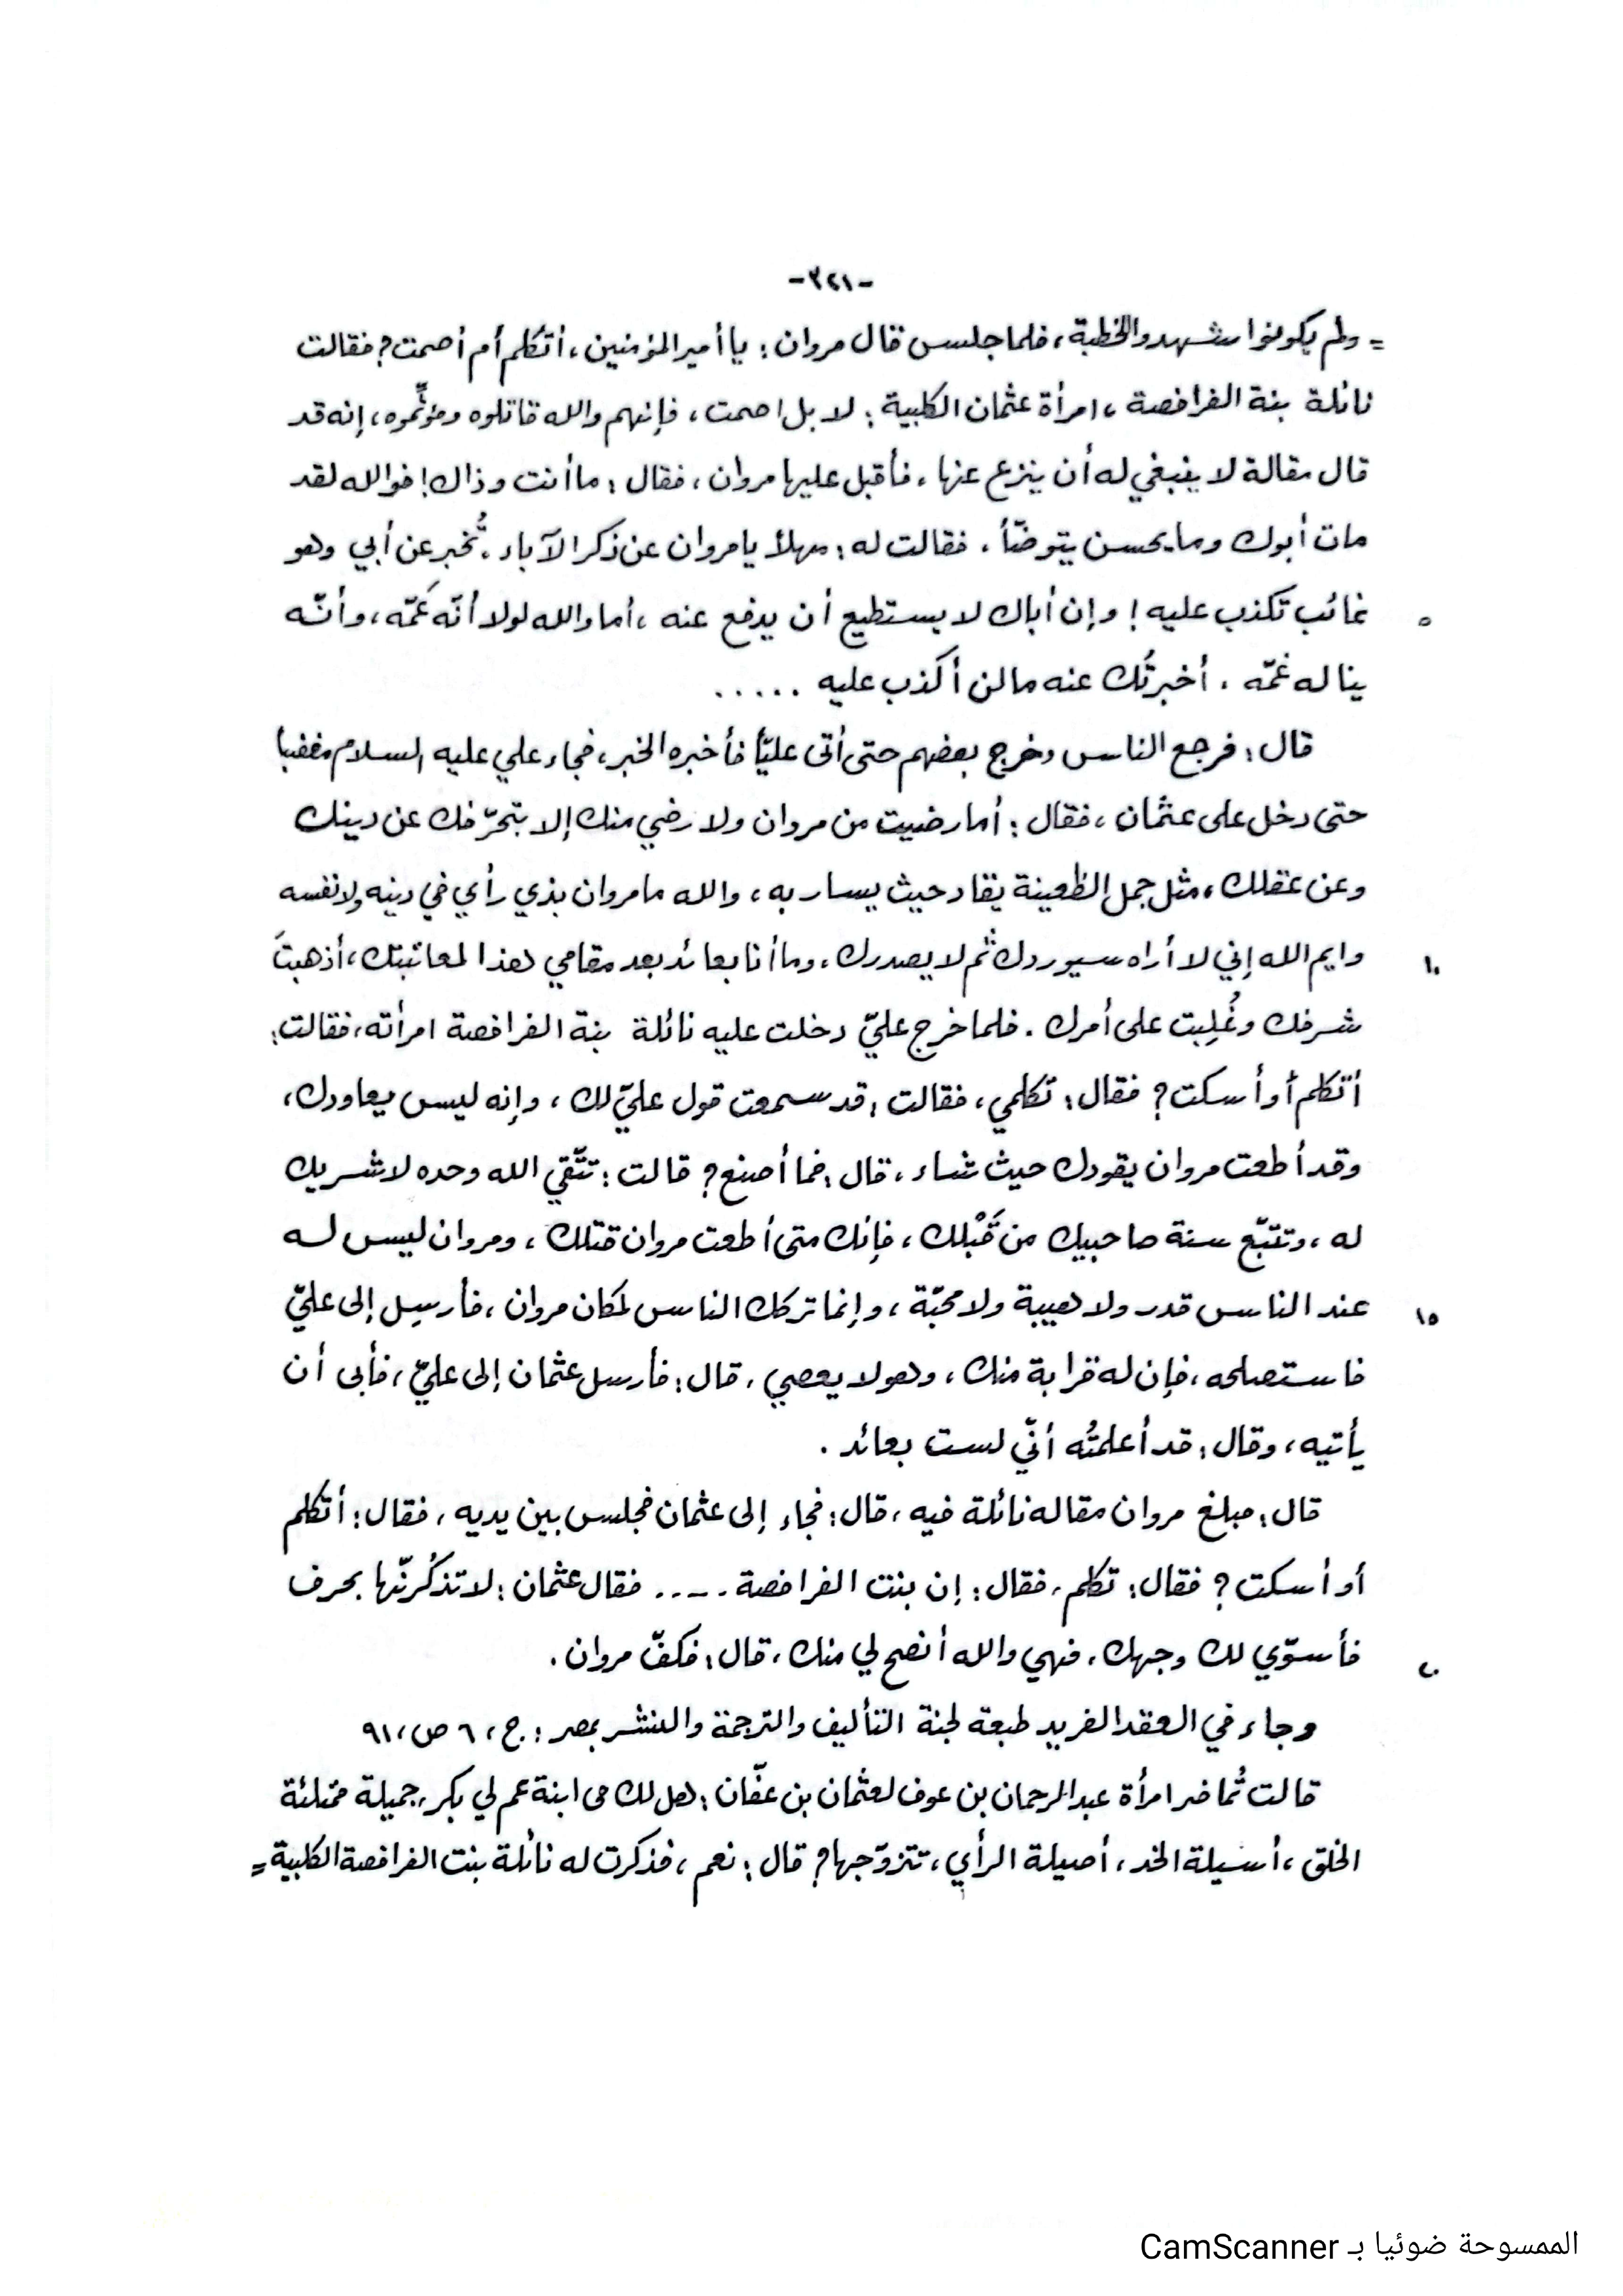 -٣٢١-
= ولم يكونوا شهدوا الخطبة، فلما جلس قال مروان: يا أمير المؤمنين، أتكلم أم أصمت؟ فقالت
نائلة بنة الفرافصة، امرأة عثمان الكلبية: لا بل اصمت، فإنهم والله قاتلوه ومؤثِّموه، إنه قد
قال مقالة لا ينبغي له أن ينزع عنها، فأقبل عليها مروان، فقال: ما أنت وذاك! فوالله لقد
مات أبوك وما يحسن يتوضّأ، فقالت له: مهلاً يا مروان عن ذكر الآباء، تُخبر عن أبي وهو
٥ غائب تكذب عليه! وإن أباك لا يستطيع أن يدفع عنه، أما والله لولا أنّه عَمّه، وأنّه
يناله غمّه، أخبرتُك عنه ما لن أكذب عليه .....
قال: فرجع الناس وخرج بعضهم حتى أتى عليّاً فأخبره الخبر، فجاء علي عليه السلام مغضبا
حتى دخل على عثمان، فقال: أما رضيت من مروان ولا رضي منك إلا بتحرّفك عن دينك
وعن عقلك، مثل جمل الظعينة يقاد حيث يسار به، والله ما مروان بذي رأي في دينه ولا نفسه
١٠ وايم الله إني لا أراه سيوردك ثُم لا يصدرك، وما أنا بعائد بعد مقامي هذا لمعاتبتك، أذهبتَ
شرفك وغُلِبت على أمرك. فلما خرج عليّ دخلت عليه نائلة بنة الفرافصة امرأته، فقالت:
أتكلم أو أسكت؟ فقال: تكلمي، فقالت: قد سمعت قول عليّ لك، وإنه ليس يعاودك،
وقد أطعت مروان يقودك حيث شاء، قال: فما أصنع؟ قالت: تتّقي الله وحده لا شريك
له، وتتبّع سنة صاحبيك من قَبْلك، فإنك متى أطعت مروان قتلك، ومروان ليس له
١٥ عند الناس قدر ولا هيبة ولا محبّة، وإنما تركك الناس لمكان مروان، فأرسِل إلى عليّ
فاستصلحه، فإن له قرابة منك، وهو لا يعصي، قال: فأرسل عثمان إلى عليّ، فأبى أن
يأتيه، وقال: قد أعلمتُه أنّي لست بعائد.
قال: فبلغ مروان مقاله نائلة فيه، قال: فجاء إلى عثمان فجلس بين يديه، فقال: أتكلم
أو أسكت؟ فقال: تكلم، فقال: إن بنت الفرافصة ..... فقال عثمان: لا تذكُرنّها بحرف
٢٠ فأسوّي لك وجهك، فهي والله أنصح لي منك، قال: فكفّ مروان.
وجاء في العقد الفريد طبعة لجنة التأليف والترجمة والنشر بمصر: ج، ٦ ص، ٩١
قالت تُماضر امرأة عبد الرحمان بن عوف لعثمان بن عفّان: هل لك في ابنة عم لي بكر، جميلة ممتلئة
الخلق، أسيلة الخد، أصيلة الرأي، تتزوّجها؟ قال: نعم، فذكرت له نائلة بنت الفرافصة الكلبية =
الممسوحة ضوئيا بـ CamScanner